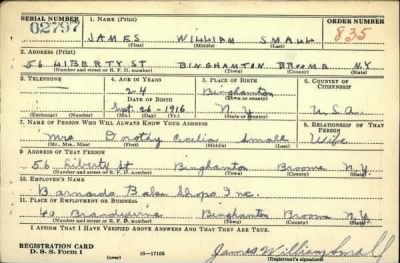 SERIAL NUMBER 1. NAME (Print) ORDER NUMBER
02797 JAMES WILLIAM SMALL 835
(First) (Middle) (Last)
2. ADDRESS (Print)
56 LIBERTY ST BINGHAMTON BROOME N.Y.
(Number and street or R. F. D. number) (Town) (County) (State)
3. TELEPHONE 4. AGE IN YEARS 5. PLACE OF BIRTH 6. COUNTRY OF CITIZENSHIP
24 Binghamton
DATE OF BIRTH (Town or county)
Sept. 26-1916 N.Y. U.S.A.
(Exchange) (Number) (Mo.) (Day) (Yr.) (State or country)
7. NAME OF PERSON WHO WILL ALWAYS KNOW YOUR ADDRESS 8. RELATIONSHIP OF THAT PERSON
Mrs Dorothy Cecilia Small Wife
(Mr., Mrs., Miss) (First) (Middle) (Last)
9. ADDRESS OF THAT PERSON
56 Liberty St Binghamton Broome N.Y.
(Number and street or R. F. D. number) (Town) (County) (State)
10. EMPLOYER'S NAME
Shops Inc.
11. PLACE OF EMPLOYMENT OR BUSINESS
Brandywine Binghamton Broome N.Y.
(Number and street or R. F. D. number) (Town) (County) (State)
I AFFIRM THAT I HAVE VERIFIED ABOVE ANSWERS AND THAT THEY ARE TRUE.
REGISTRATION CARD
D. S. S. Form 1 (over) 16—17105 James William Small
(Registrant's signature)